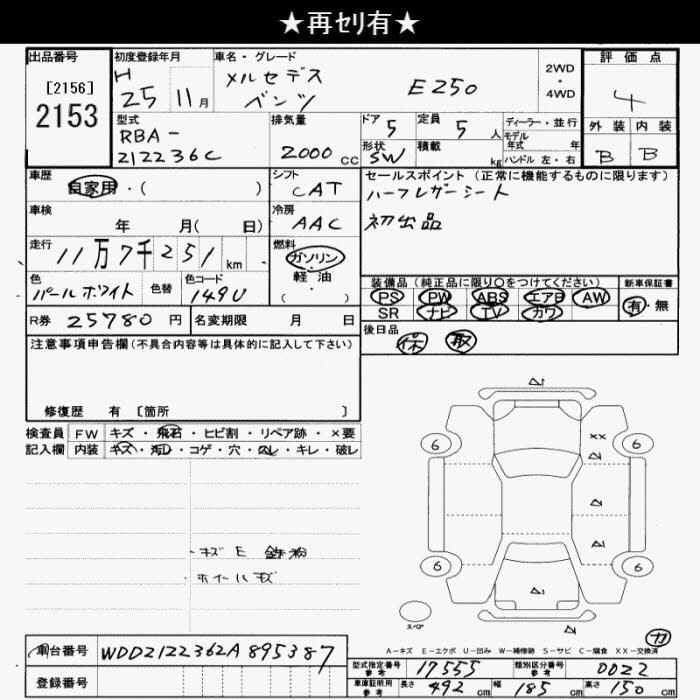 ★再ｾﾘ有★
出品番号
[2156]
2153
初度登録年月
H 25 11 月
車名・グレード
メルセデス ベンツ
E250
2WD・4WD
評価点
4
外装 内装
B B
型式
RBA-
212236C
排気量
2000 cc
ドア 5
定員 5 人
形状 SW
積載 kg
ディーラー・並行
モデル年式 年
ハンドル 左・右
車歴
自家用・( )
シフト
CAT
セールスポイント (正常に機能するものに限ります)
ハーフレザーシート
初出品
車検
年 月( 日)
冷房
AAC
走行
11万7千251 km
燃料
ガソリン・軽油
( )
色
パールホワイト
色替
色コード
149U
装備品 (純正品に限り○をつけてください)
PS PW ABS エアB AW
SR ナビ TV カワ
新車保証書
有・無
R券 25780 円
名変期限 月 日
後日品
保 取
注意事項申告欄 (不具合内容等は具体的に記入して下さい)
修復歴 有 [箇所 ]
検査員記入欄
FW キズ・飛石・ヒビ割・リペア跡・×要
内装 キズ・汚レ・コゲ・穴・スレ・キレ・破レ
・キズE 鉄粉
・ホイールキズ
6 6 6 6
XX
スペア
カ
A－キズ E－エクボ U－凹み W－補修跡 S－サビ C－腐食 XX－交換済
車台番号 WDD2122362A895387
登録番号
型式指定番号参考 17555
類別区分番号参考 0022
車庫証明用参考 長さ 492 cm 幅 185 cm 高さ 150 cm